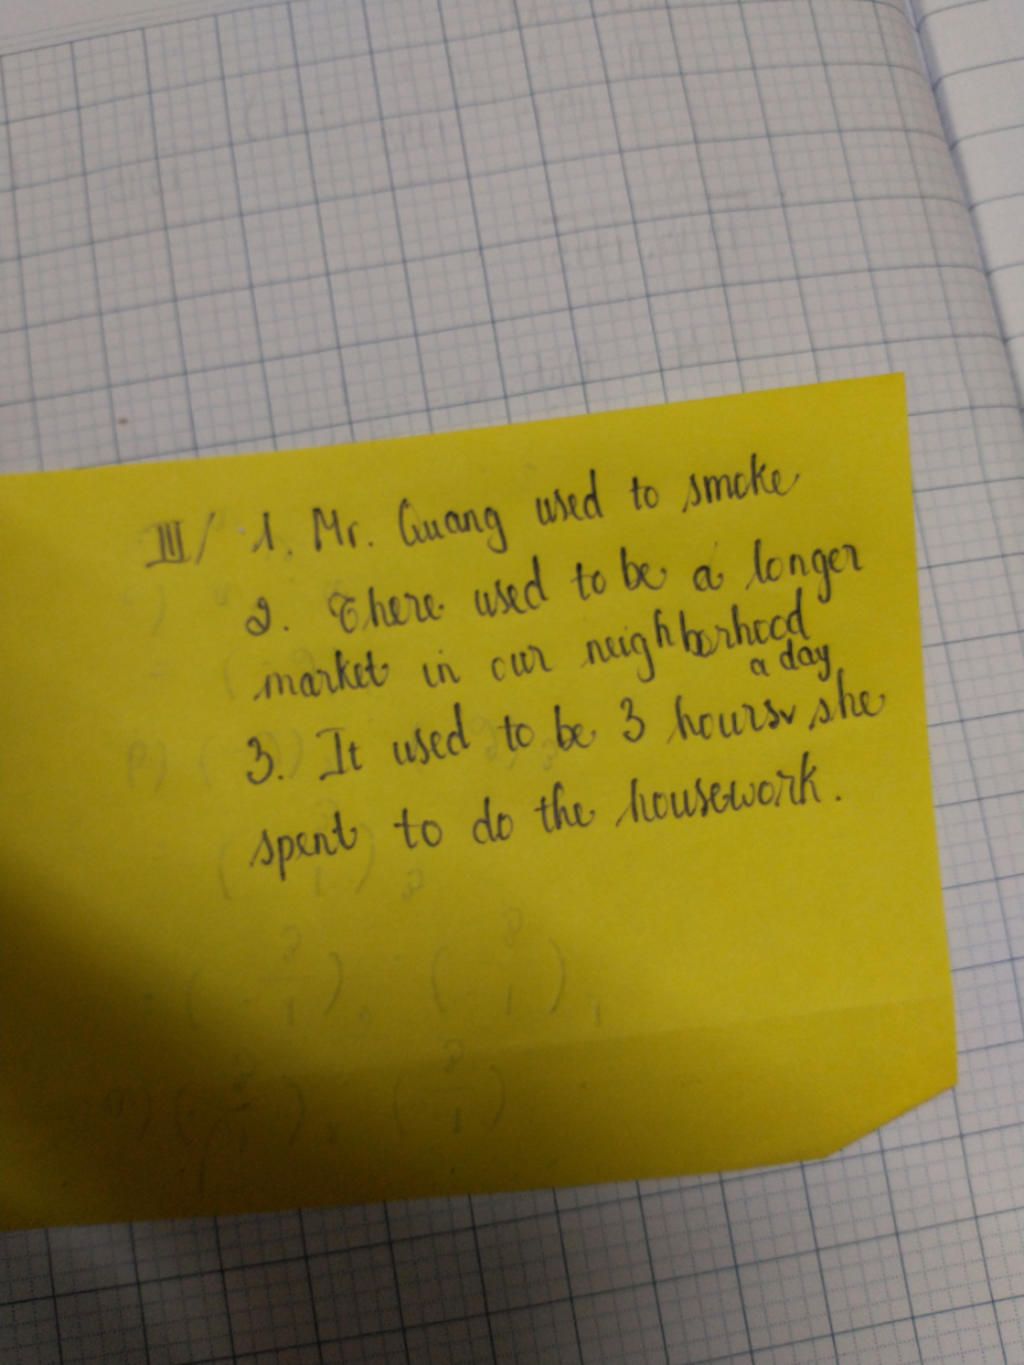 III/ 1. Mr. Quang used to smoke
2. There used to be a longer
market in our neighborhood
a day
3. It used to be 3 hours she
spent to do the housework.